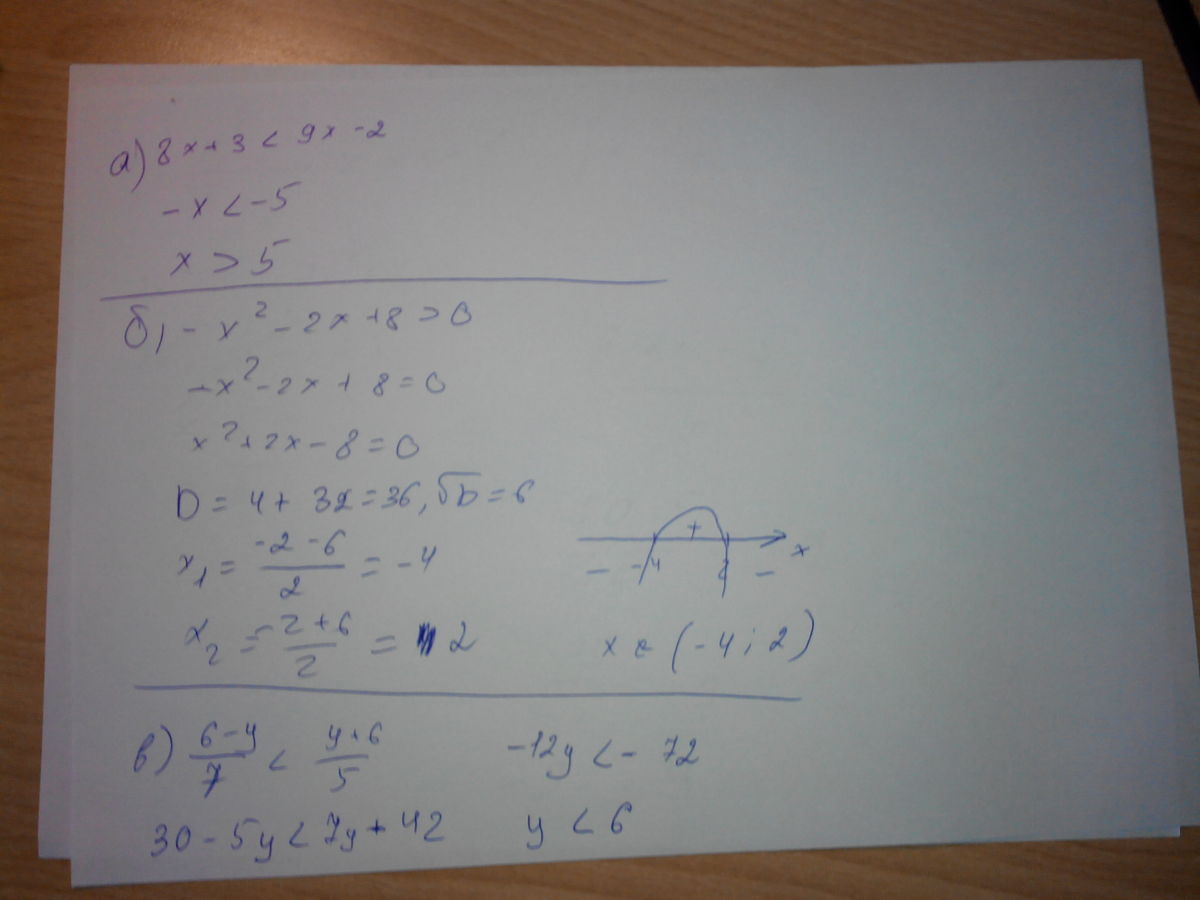 а) 8x+3 < 9x-2
-x < -5
x > 5
б) -x²-2x+8>0
-x²-2x+8=0
x²+2x-8=0
D=4+32=36, √D=6
x₁ = (-2-6)/2 = -4
x₂ = (-2+6)/2 = 2
+
- -4 2 - x
x ∈ (-4; 2)
в) (6-y)/7 < (y+6)/5
30-5y<7y+42
-12y<-72
y < 6